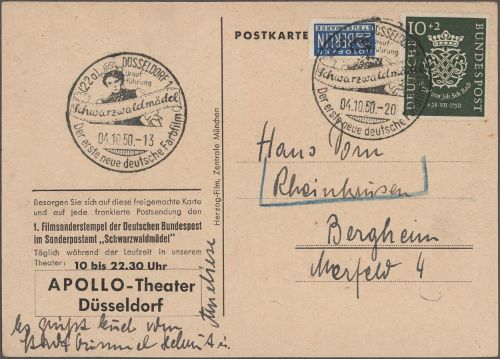 POSTKARTE
(22a) DÜSSELDORF 1
Urauf-
führung
Schwarzwaldmädel
04.10.50.-13
Der erste neue deutsche Farbfilm
NOTOPFER
BERLIN
STEUERMARKE
DÜSSELDORF
auf
führung
Schwarzwaldmädel
04.10.50.-20
Der erste neue deutsche
10+2
DEUTSCHE
BUNDESPOST
von Joh. Seb. Bach
28·VII·1750
Hans
Rheinhausen
Bergheim
4
Herzog-Film, Zentrale München
Besorgen Sie sich auf diese freigemachte Karte
und auf jede frankierte Postsendung den
1. Filmsonderstempel der Deutschen Bundespost
im Sonderpostamt „Schwarzwaldmädel"
Täglich während der Laufzeit in unserem
Theater: 10 bis 22.30 Uhr
APOLLO-Theater
Düsseldorf
Es grüßt Euch vom
Helmut u.
Anneliese